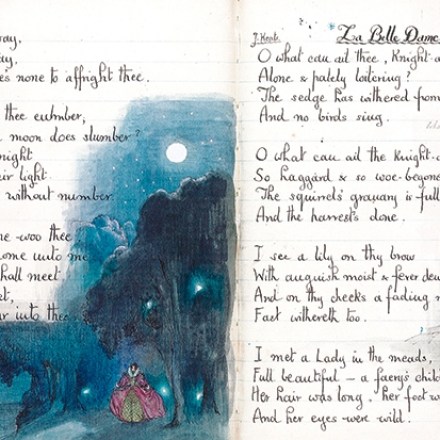 way.
ay.
es none to affright thee.
thee cumber,
moon does slumber?
night
eir light
without number.
me woo thee
ome unto me
hall meet
et,
ur into thee
J. Keats. La Belle Dame
O what can ail thee, Knight-a
Alone & palely loitering?
The sedge has withered from
And no birds sing.
O what can ail the Knight-
So haggard & so woe-begone
The squirrels' granary is full
And the harvest's done.
I see a lily on thy brow
With anguish moist & fever dew
And on thy cheeks a fading
Fast withereth too.
I met a Lady in the meads,
Full beautiful – a faery's chil
Her hair was long, her foot w
And her eyes were wild.